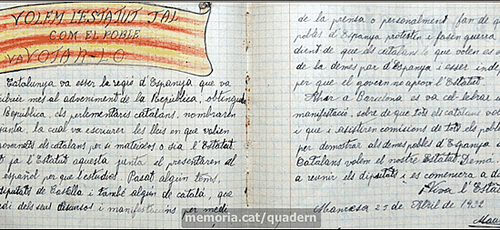 VOLEM L'ESTATUT TAL
COM EL POBLE
VA VOTAR-LO
Catalunya va esser la regió d'Espanya que va
mes al adveniment de la República,
República, els parlamentares catalans, nomenaren
junta, la cual va escriurer les lleis en que volien
els catalans per si mateixos o sia l'Estatut.
ja l'Estatut aquesta junta el presentaren al
espanyol per que l'estudies. Pasat algún temps,
diputats de Castella i també algún de català, que
dels seus discursos i manifestacions per medi
de la prensa o personalment, fan de
pobles d'Espanya protestin i fasin guerra
dient de que els catalans lo que volen es
de la demes part d'Espanya i esser inde
per que el govern no aprovi l'Estatut.
Ahir a Barcelona es va celebrar
manifestació, sobre de que tots els catalans vol
i que i assistiren comisions de tots els pobles
per demostrar als demes pobles d'Espanya
Catalans volem el nostre Estatut. Demà
a reunir els diputats i es comensera a d
¡Viva l'Esta
Manresa 25 de Abril de 1932
memoria.cat/quadern